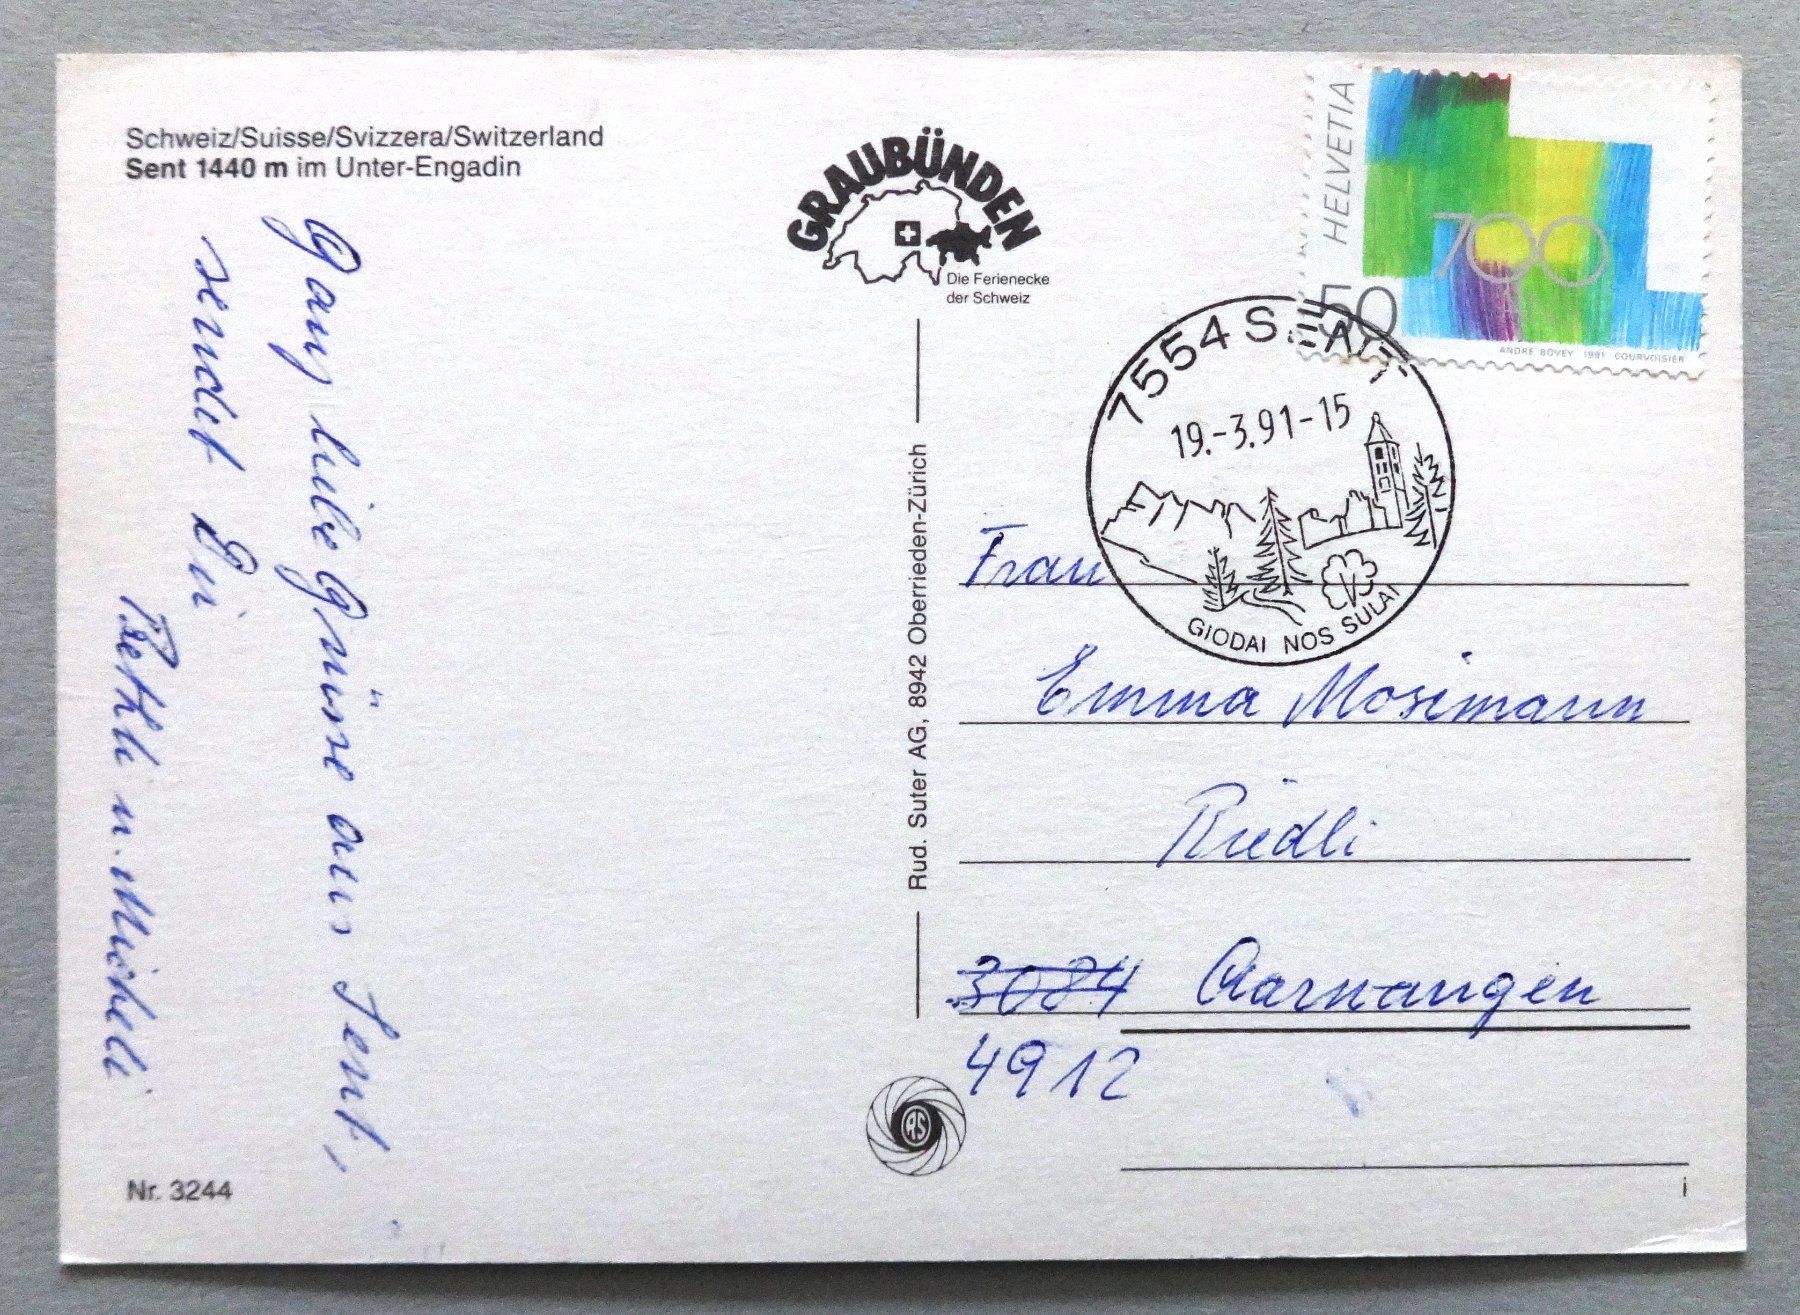 Schweiz/Suisse/Svizzera/Switzerland
Sent 1440 m im Unter-Engadin
Ganz liebe Grüsse aus Sent,
sendet Dir
Bethli u. Micheli
Nr. 3244
GRAUBÜNDEN
Die Ferienecke
der Schweiz
Rud. Suter AG, 8942 Oberrieden-Zürich
RS
HELVETIA
700
50
ANDRE BOVEY 1991 COURVOISIER
7554 SENT
19.-3.91-15
GIODAI NOS SULAI
Frau
Emma Mosimann
Riedli
3084 Aarwangen
4912
i